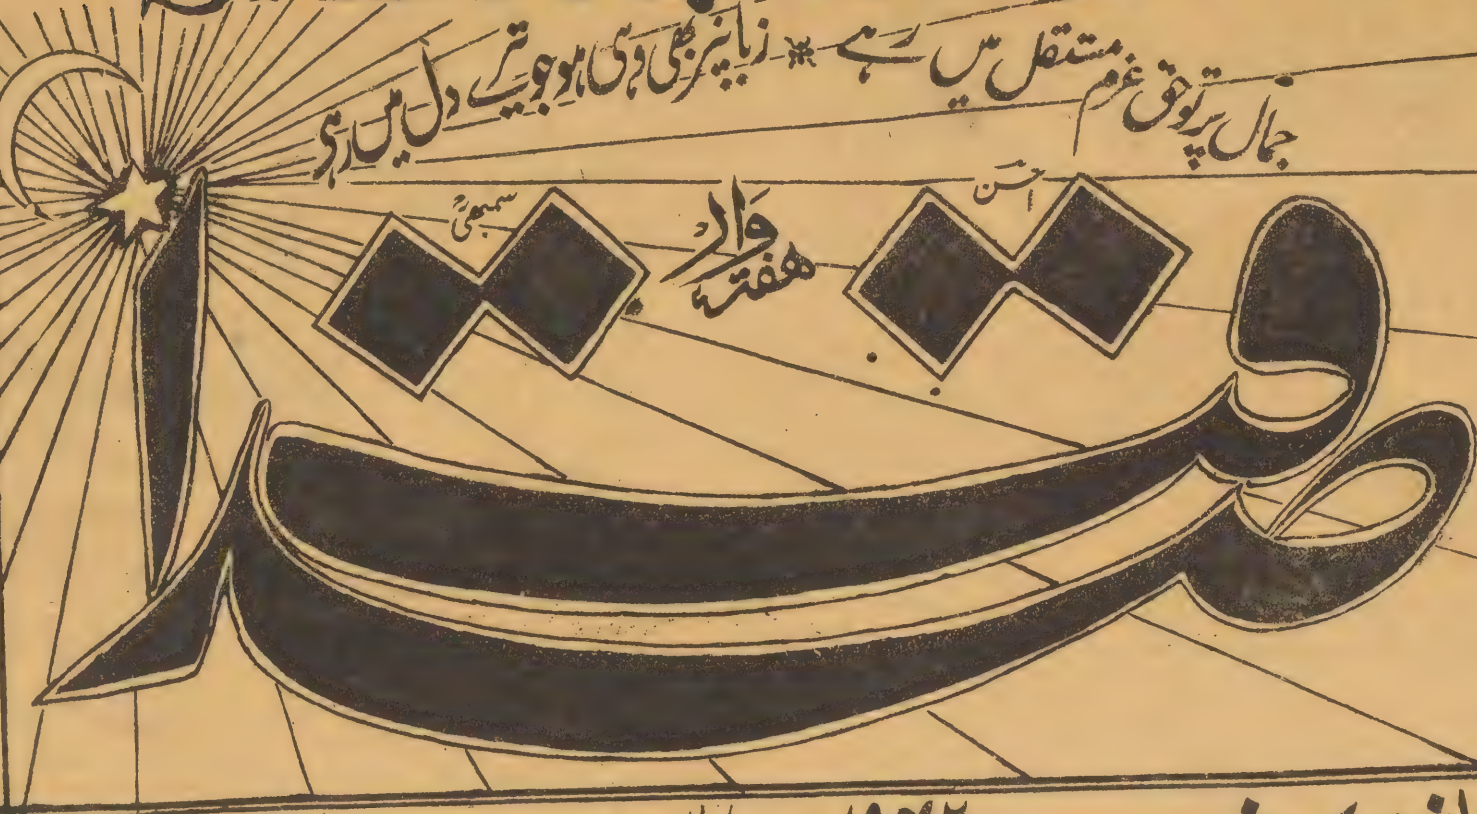 جمال پرتو حق عزم مستقل میں رہے * زبانپر بھی وہی ہو جو تیرے دل میں رہی
احسن
ہفتہ وار
صداقت